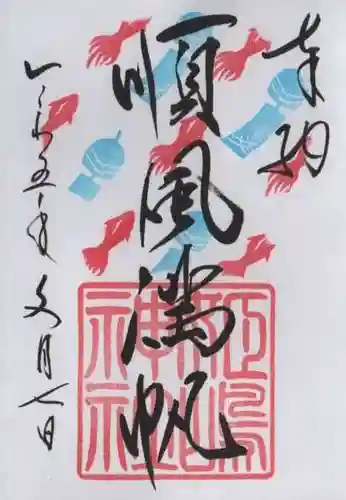 奉納
順風満帆
令和五年文月七日
神社